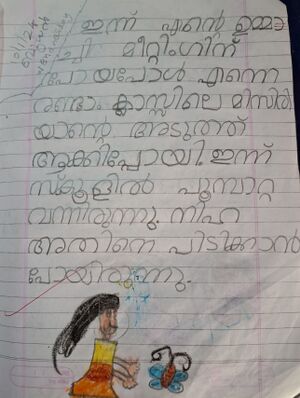 10/1/24
ഇന്ന് എന്റെ ഉമ്മാ
ച്ചി മീറ്റിംഗിന്
പോയപ്പോൾ എന്നെ
രണ്ടാം ക്ലാസ്സിലെ മിസിരി
യാന്റെ അടുത്ത്
ആക്കിപ്പോയി. ഇന്ന്
സ്കൂളിൽ പൂമ്പാറ്റ
വന്നിരുന്നു. നിഹ
അതിനെ പിടിക്കാൻ
പോയിരുന്നു.